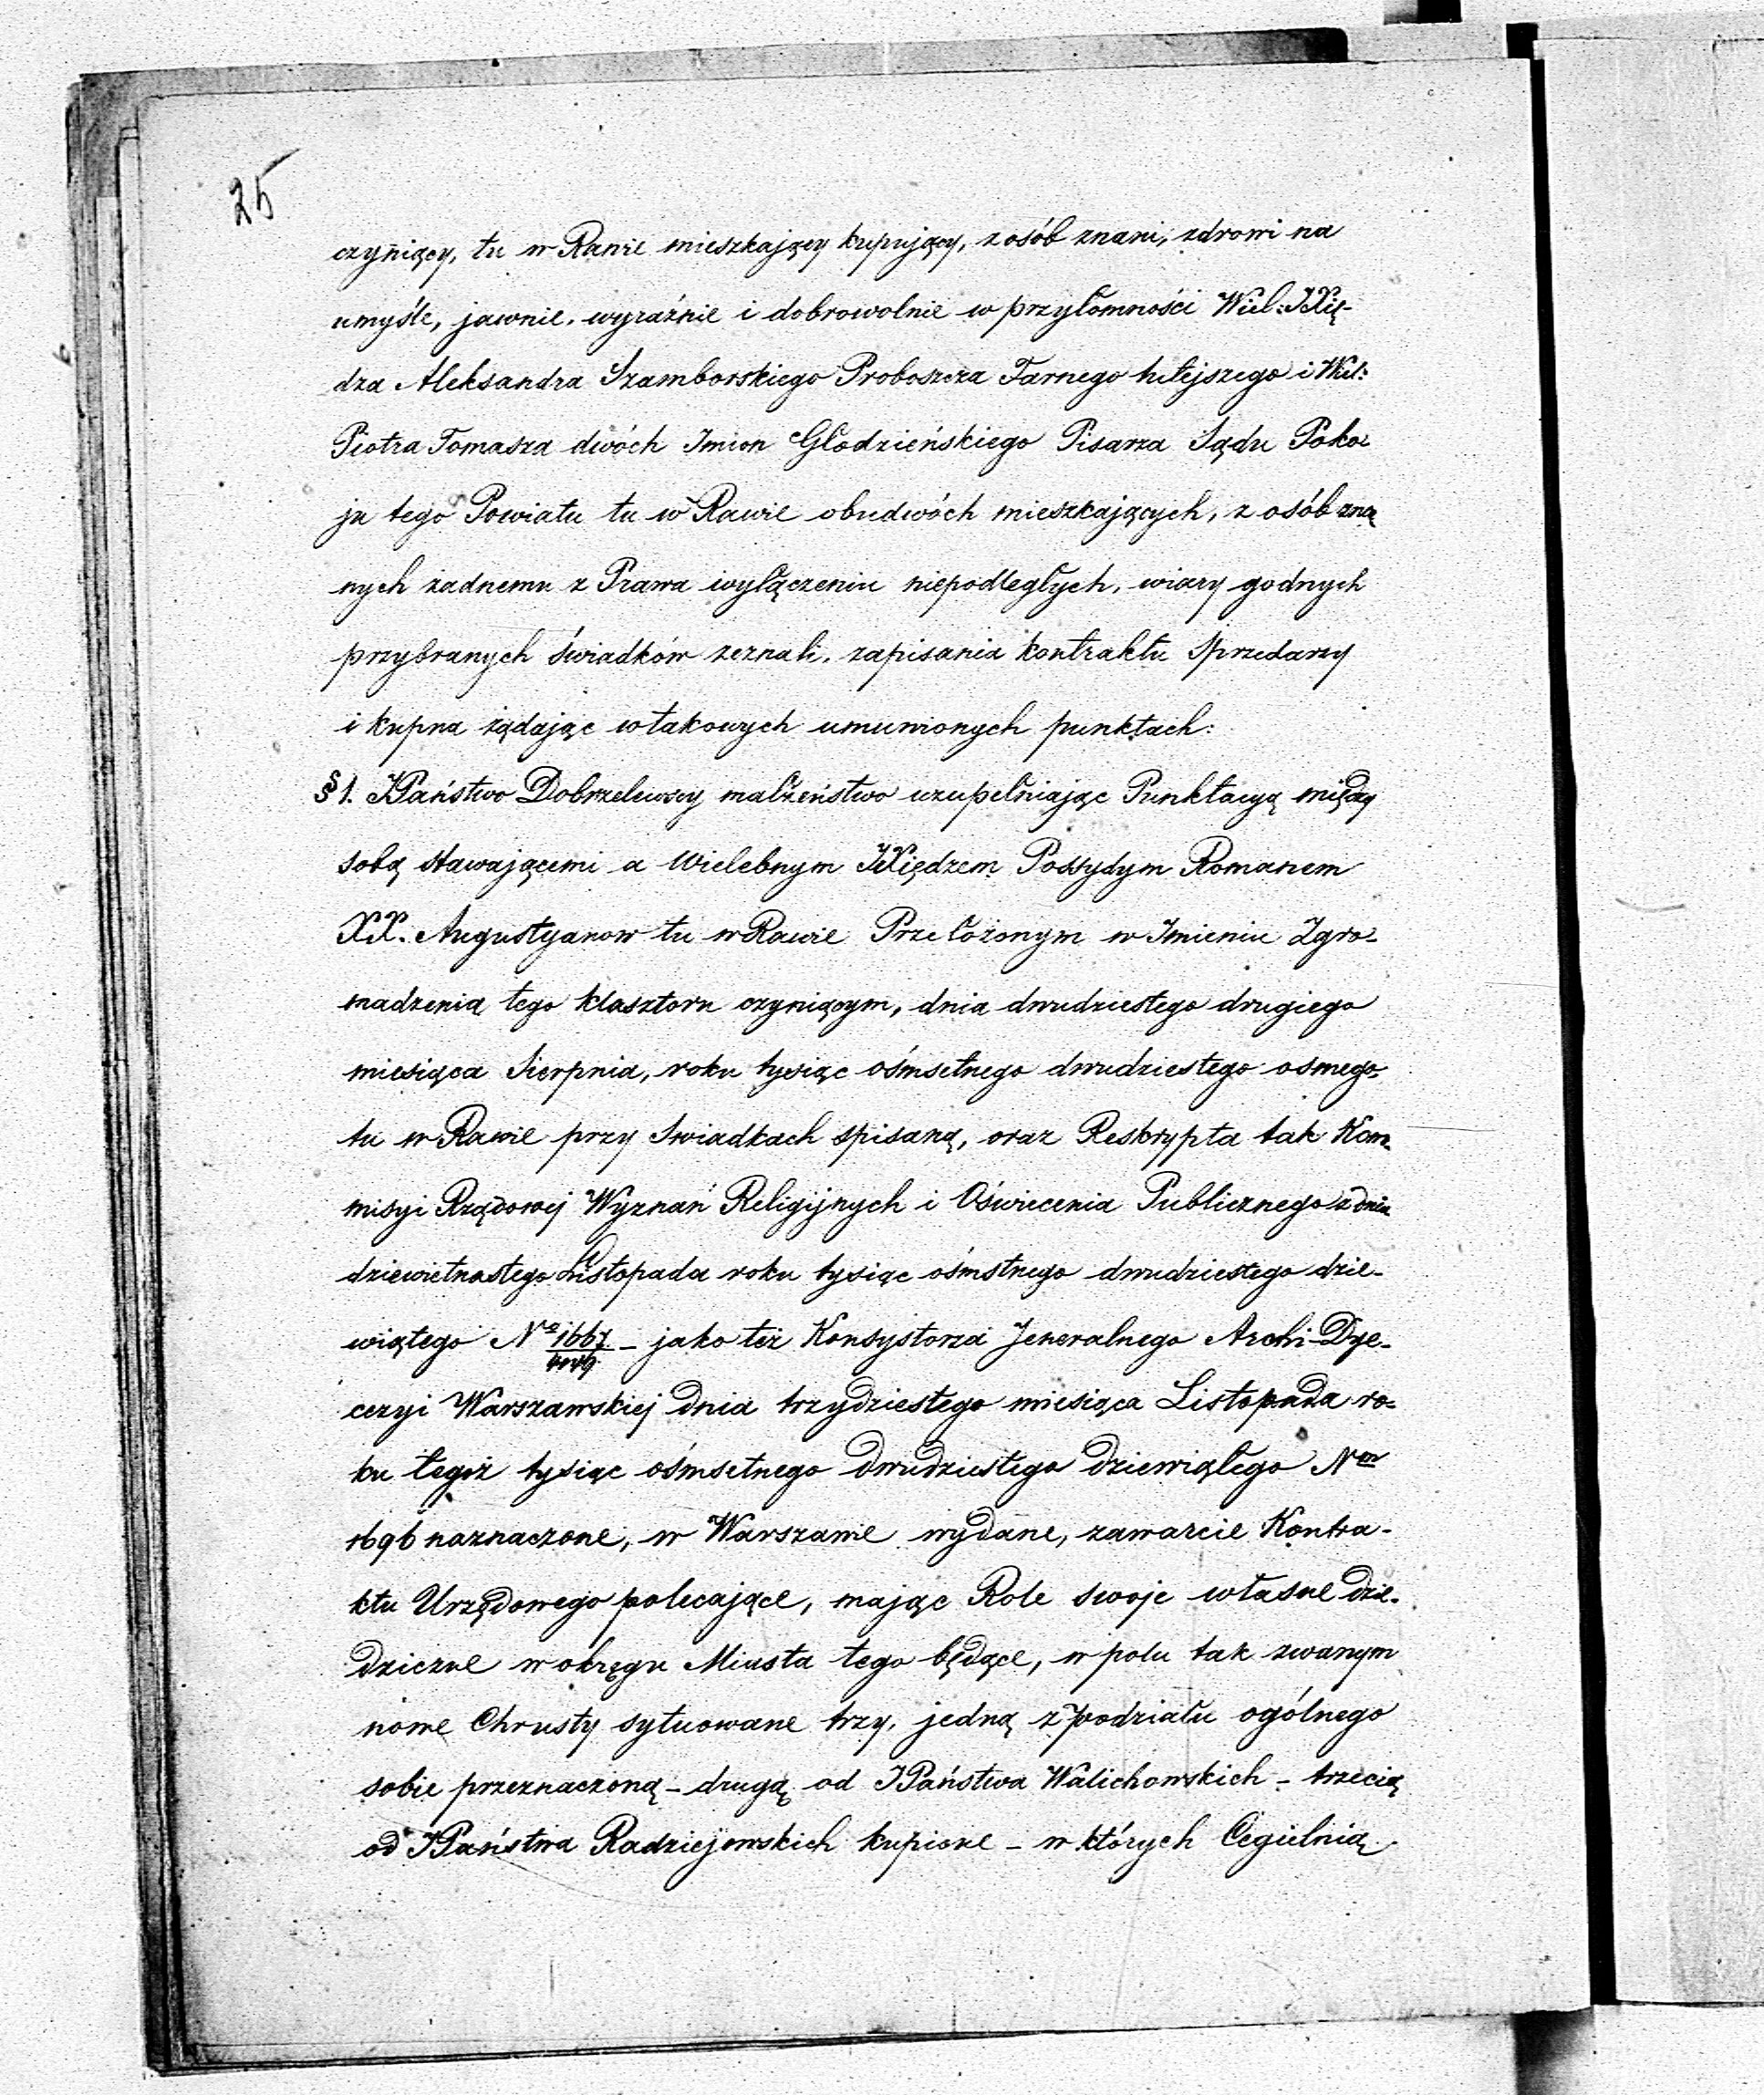 25
czyniący, tu w Rawie mieszkający kupujący, z osób znani, zdrowi na
umyśle, jawnie, wyraźnie i dobrowolnie w przytomności Wiel: JXię-
dza Aleksandra Szamborskiego Proboszcza Farnego tutejszego i Wiel:
Piotra Tomasza dwóch Imion Głodzieńskiego Pisarza Sądu Poko-
ju tego Powiatu tu w Rawie obudwóch mieszkających, z osób zna
nych żadnemu z Prawa wyłączeniu niepodległych, wiary godnych
przybranych świadków zeznali, zapisania kontraktu sprzedarzy
i kupna żądając w takowych umunionych punktach:
§ 1. JPaństwo Dobrzelewscy małżeństwo uzupełniając Punktacyą między
sobą stawającemi a Wielebnym JXiędzem Possydym Romanem
XX. Augustyanow tu w Rawie Przełożonym w Imieniu Zgro-
madzenia tego klasztoru czyniącym, dnia dwudziestego drugiego
miesiąca Sierpnia, roku tysiąc ośmsetnego dwudziestego osmego
tu w Rawie przy Swiadkach spisaną, oraz Reskrypta tak Kom-
misyi Rządowej Wyznań Religijnych i Oświecenia Publicznego z dnia
dziewietnastego Listopada roku tysiąc ośmstnego dwudziestego dzie-
wiątego No 1667 – jako też Konsystorza Jeneralnego Archi-Dye-
cezyi Warszawskiej dnia trzydziestego miesiąca Listopada ro-
ku tegoż tysiąc ośmsetnego dwudziestego dziewiątego Nm
1696 naznaczone, w Warszawie wydane, zawarcie Kontra-
ktu Urzędowego polecające, mając Role swoje własne dzie-
dziczne w okręgu Miasta tego będące, w polu tak zwanym
nowe Chrusty sytuowane trzy, jedną z podziału ogólnego
sobie przeznaczoną – drugą od JPaństwa Walichowskich – trzecią
od JPaństwa Radziejowskich kupione – w których Cegielnią